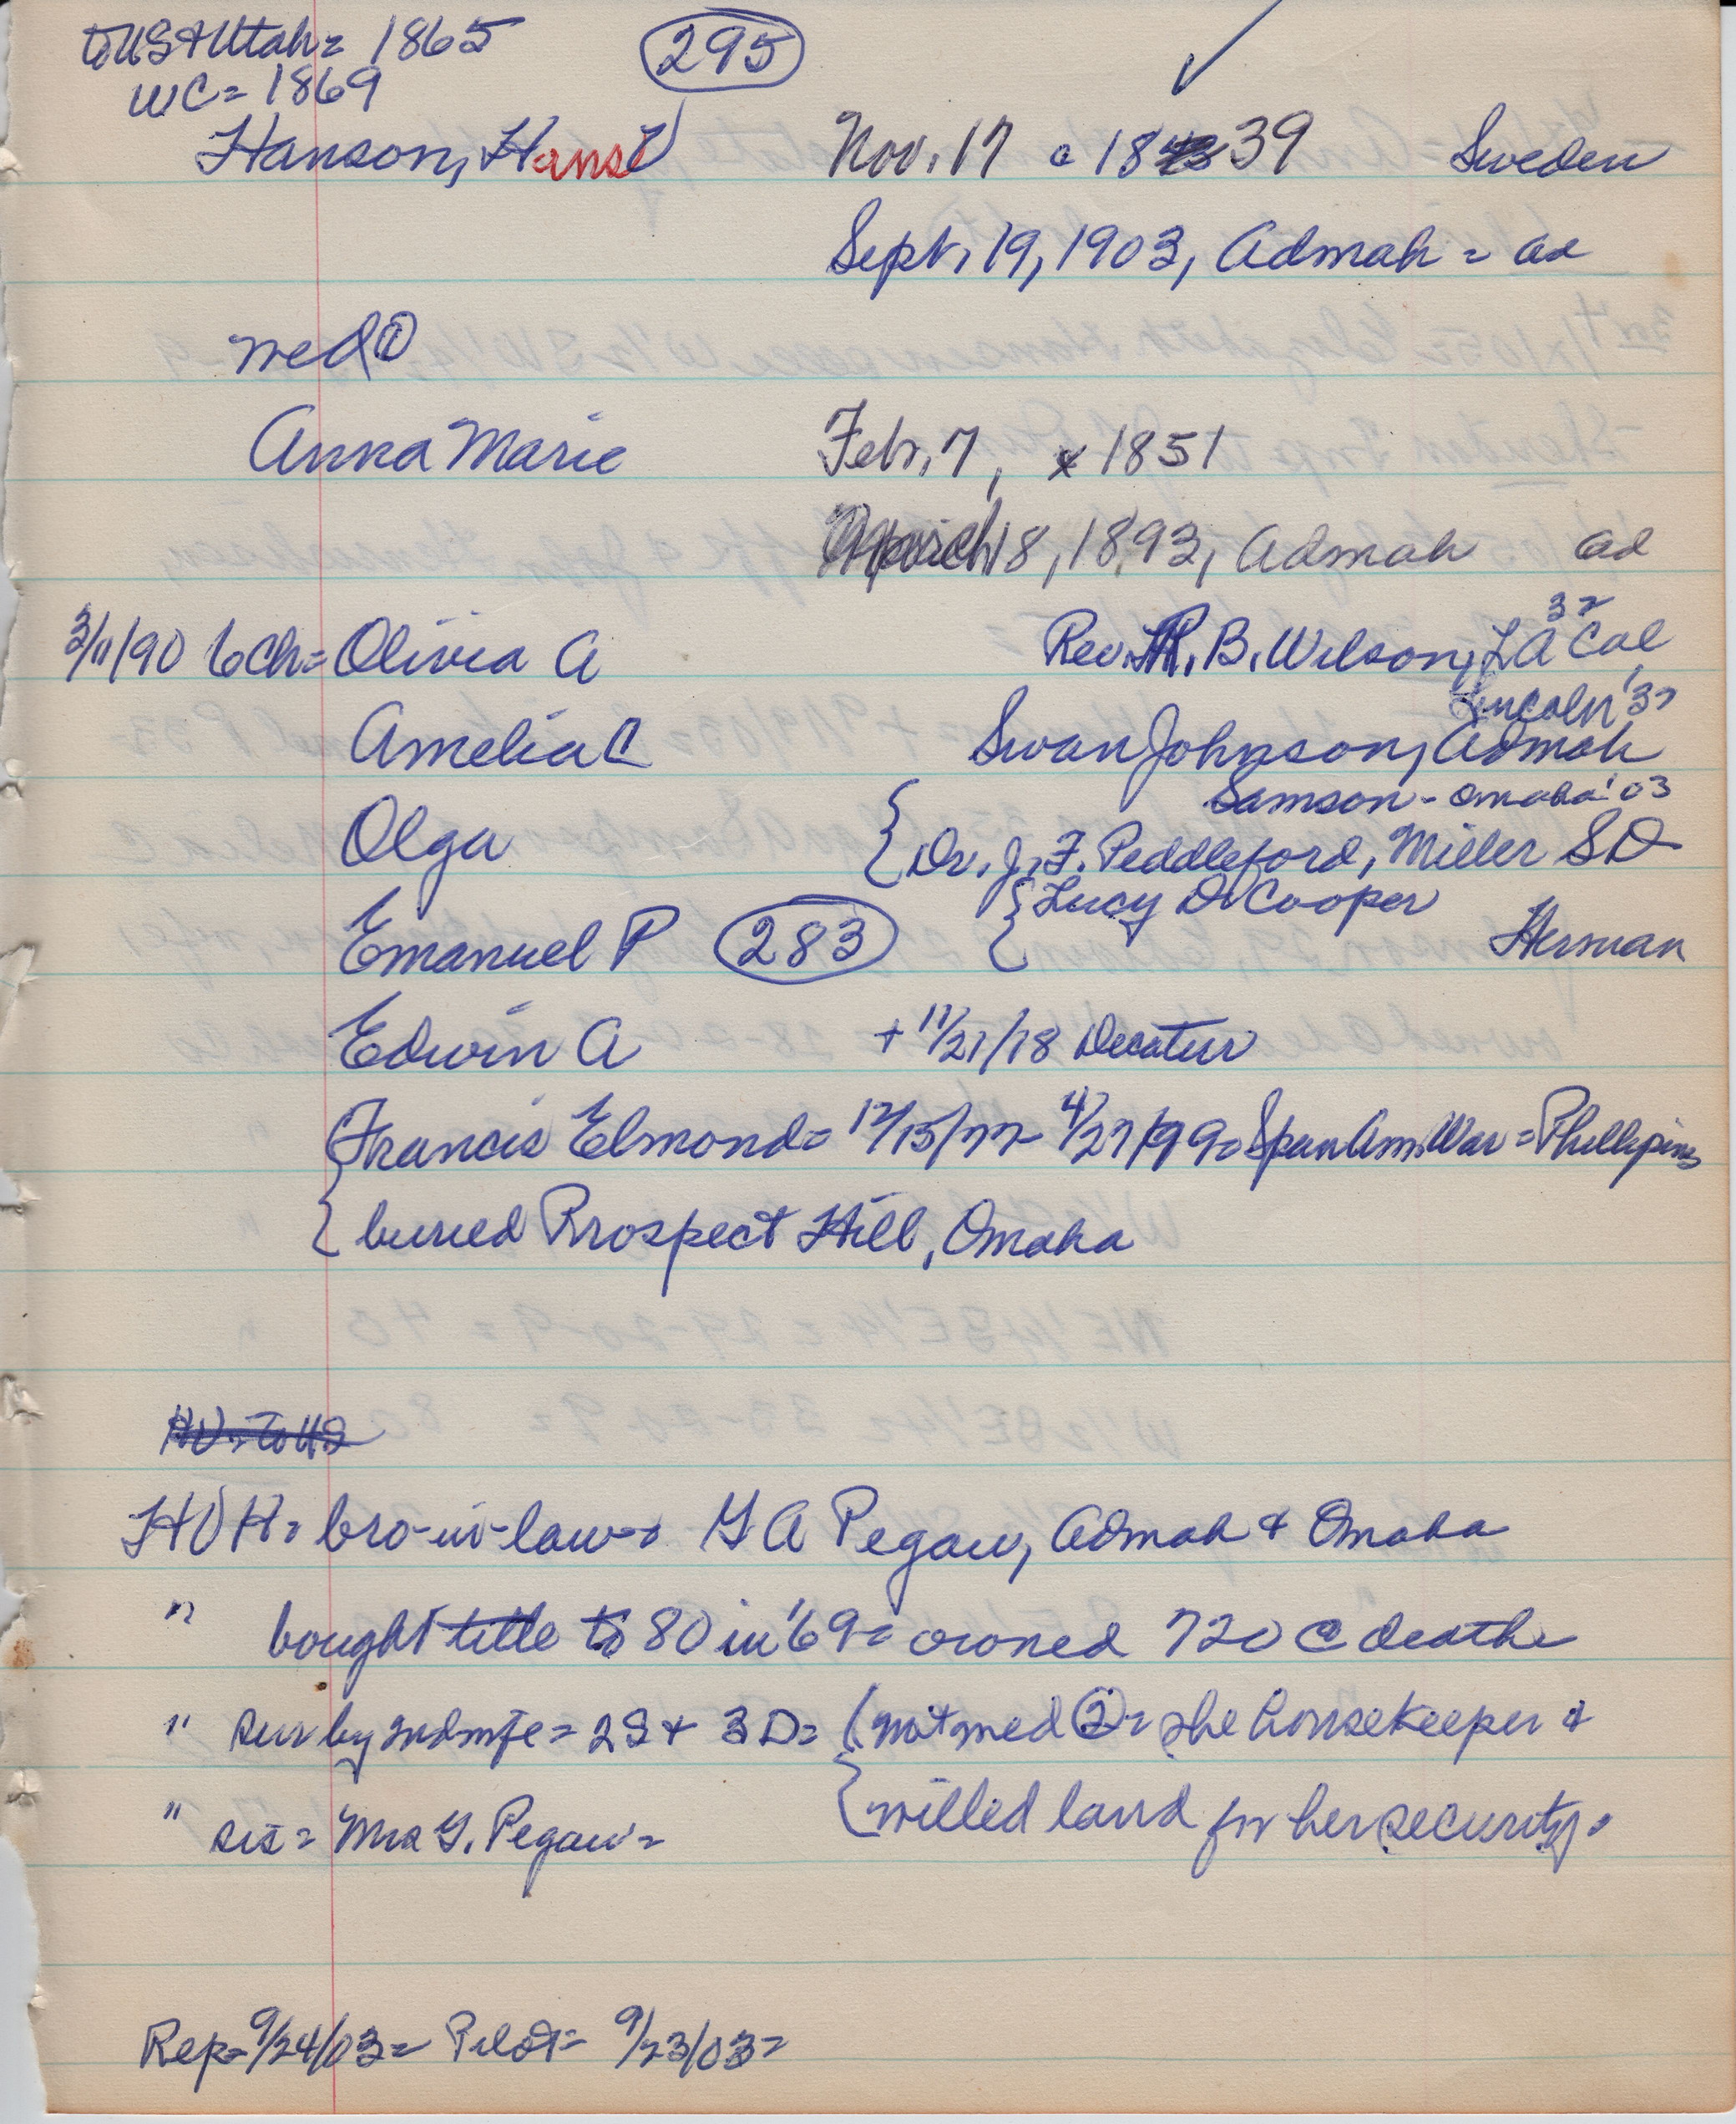 to US & Utah = 1865
295
WC = 1869
Hanson, Hans Nov. 17 1839 Sweden
Sept. 19, 1903, Admah = ad
wed ①
Anna Marie Feb. 7, x 1851
March 18, 1893, Admah ad
32
3/11/90 6 Ch = Olivia A Rev. R. B. Wilson, LA Cal
Lincoln '32
Amelia C Swan Johnson, Admah
Samson - Omaha '03
Olga { Dr. J. F. Peddleford, Miller SD
{ Lucy D Cooper
Emanuel P 283 Herman
Edwin A + 11/21/18 Decatur
{ Francis Elmond = 12/15/77 - 4/27/99 = Span Am. War = Phillipines
{ buried Prospect Hill, Omaha
HJH = bro-in-law = G A Pegau, Admah & Omaha
" bought title to 80 in '69 = owned 720 @ death
" sur by 2nd wfe = 2S + 3D = { not wed ② = she housekeeper &
{ willed land for her security.
" sis = Mrs G. Pegau =
Rep = 9/24/03 = Pilot = 9/23/03 =